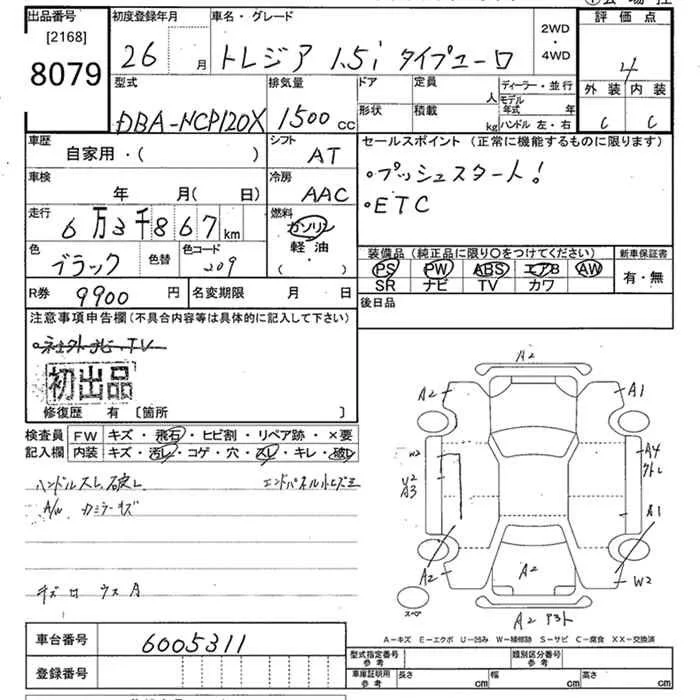 出品番号
[2168]
8079
初度登録年月
26 月
車名・グレード
トレジア 1.5i タイプユーロ
2WD
・
4WD
評価点
4
外装 内装
C C
型式
DBA-NCP120X
排気量
1500 cc
ドア
形状
定員
人
積載
kg
ディーラー・並行
モデル年式 年
ハンドル 左・右
車歴
自家用・( )
シフト
AT
車検
年 月( 日)
冷房
AAC
セールスポイント (正常に機能するものに限ります)
・プッシュスタート!
・ETC
走行
6万3千867km
燃料
ガソリン
軽・油
( ・ )
色
ブラック
色替
色コード
209
装備品(純正品に限り○をつけてください)
PS PW ABS エアB AW
SR ナビ TV カワ
新車保証書
有・無
R券
9900 円
名変期限 月 日
後日品
注意事項申告欄(不具合内容等は具体的に記入して下さい)
初出品
修復歴 有 〔箇所 〕
検査員
記入欄
FW キズ・飛石・ヒビ割・リペア跡・×要
内装 キズ・汚レ・コゲ・穴・スレ・キレ・破レ
ハンドルスレ破レ
エンドパネル小ヒズミ
A/W カミラーキズ
キズロ ウス月
A2
A2
A1
W2
A4
U2
A3
A1
A2
A2
W2
スペア
A2
A-キズ E-エクボ U-凹み W-補修跡 S-サビ C-腐食 XX-交換済
車台番号
6005311
登録番号
型式指定番号
参考
類別区分番号
参考
車庫証明用
参考
長さ cm
幅 cm
高さ cm